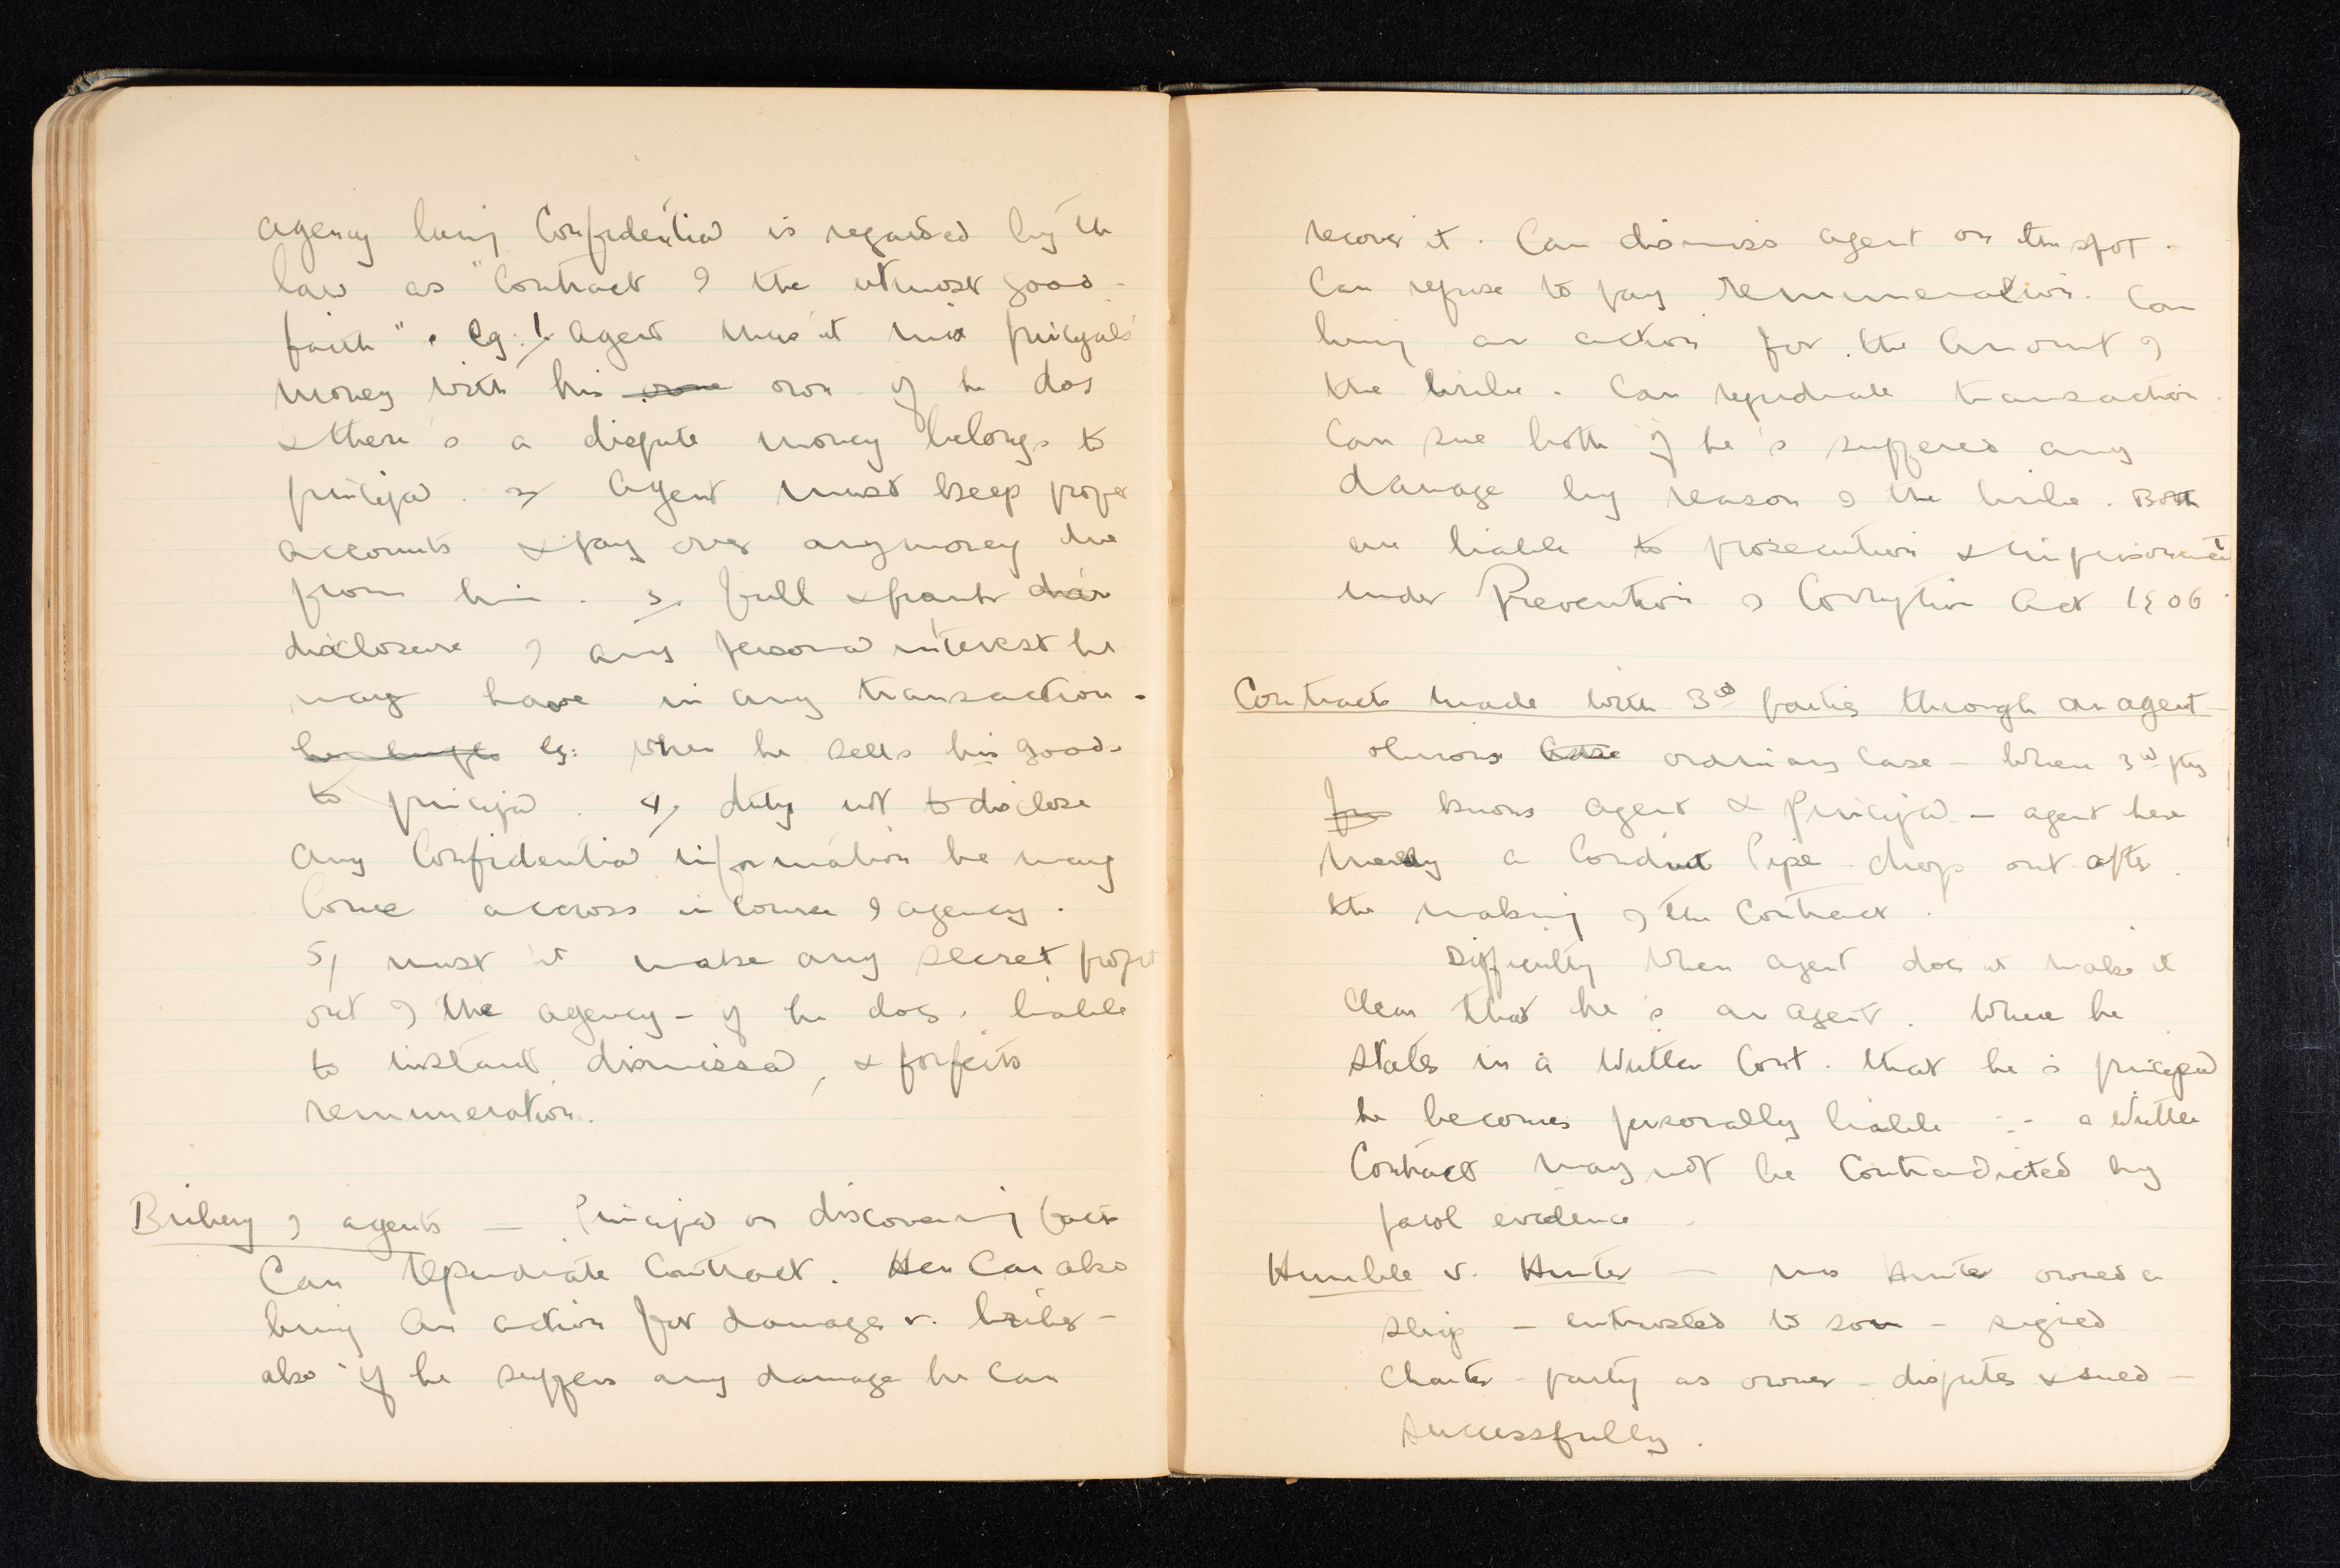 agency being Confidential is regarded by the
law as "Contract of the utmost good-
faith". eg: 1. Agent mus'nt mix principals'
money with his own own if he does
& there's a dispute money belongs to
principal. 2/ Agent must keep proper
accounts & pay over any money due
from him. 3. full & frank
disclosure of any personal interest he
may have in any transaction -
eg: when he sells his goods
to principal. 4/ duty not to disclose
any Confidential information he may
Come across in Course of agency.
5/ must n't make any secret profit
out of the agency - if he does, liable
to instant dismissal, & forfeits
remuneration.
Bribery of agents — Principal on discovering facts
Can repudiate Contract. He Can also
bring an action for damages v. briber -
also if he suffers any damage he can
recover it. Can dismiss agent on the spot.
Can refuse to pay remuneration. Can
bring an action for the amount of
the bribe. Can repudiate transaction.
Can sue both if he's suffered any
damage by reason of the bribe. Both
are liable to prosecution & imprisonment
under Prevention of Corruption Act 1906.
Contracts made with 3rd parties through an agent -
obvious Case ordinary case - when 3rd pty
knows agent & principal - agent here
merely a Conduit Pipe drops out after
the making of the Contract.
Difficulty when agent does n't make it
clear that he's an agent. Where he
states in a written Cont. that he is principal
he becomes personally liable ∵ a written
Contract may not be Contradicted by
parol evidence.
Humble v. Hunter — Mrs Hunter owned a
ship - entrusted to son - signed
Charter-party as owner - disputes & sued -
successfully.